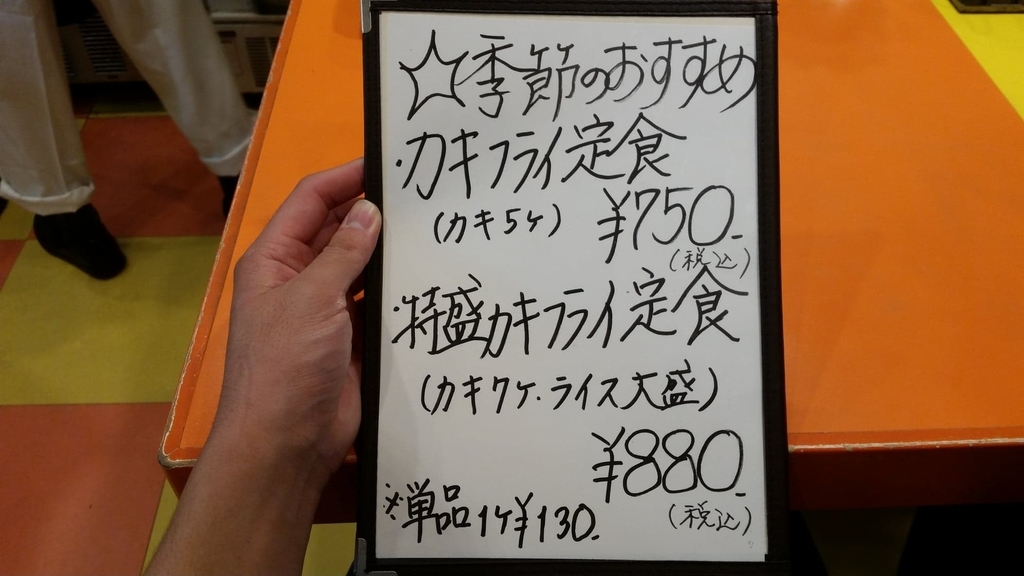 ☆季節のおすすめ
・カキフライ定食
(カキ5ヶ) ¥750.
(税込)
・特盛カキフライ定食
(カキ7ヶ・ライス大盛)
¥880.
(税込)
※単品1ヶ¥130.